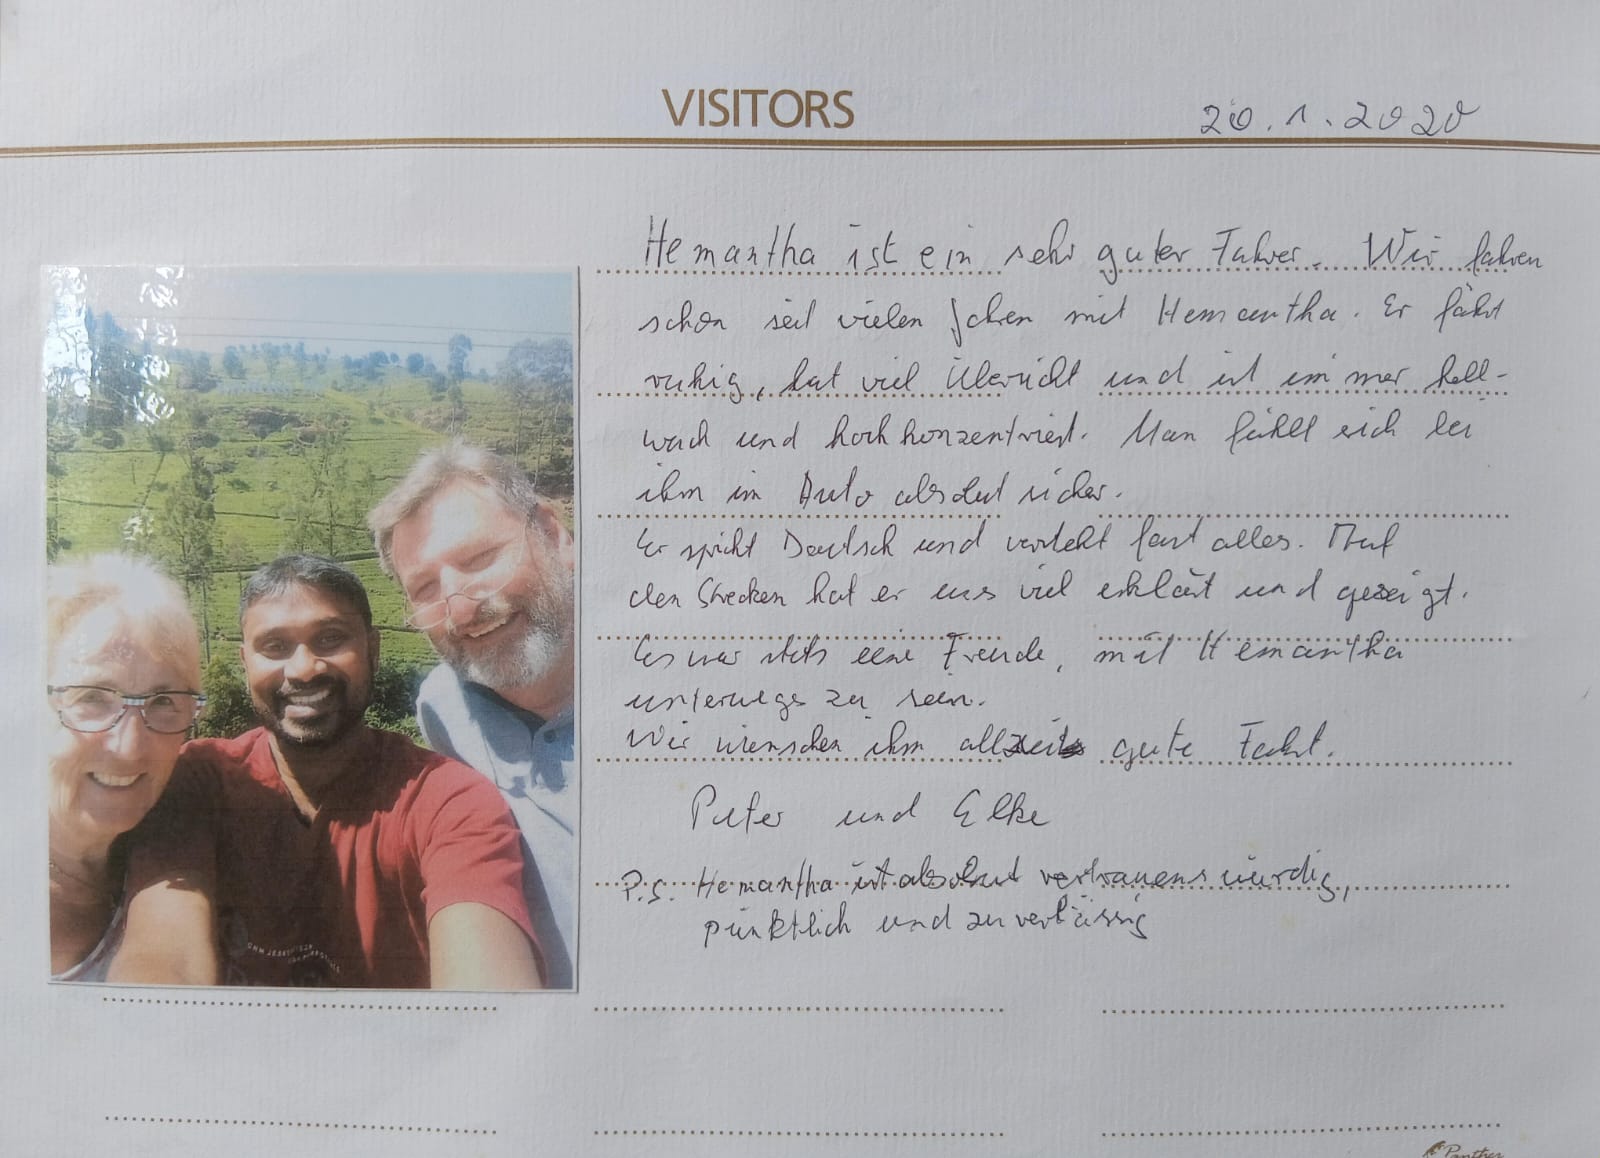 VISITORS
20.1.2020
Hemantha ist ein sehr guter Fahrer. Wir fahren
schon seit vielen Jahren mit Hemantha. Er fährt
ruhig, hat viel Übersicht und ist immer hell-
wach und hochkonzentriert. Man fühlt sich bei
ihm im Auto absolut sicher.
Er spricht Deutsch und versteht fast alles. Auf
den Strecken hat er uns viel erklärt und gezeigt.
Es war stets eine Freude, mit Hemantha
unterwegs zu sein.
Wir wünschen ihm allzeit gute Fahrt.
Peter und Elke
P.S. Hemantha ist absolut vertrauenswürdig,
pünktlich und zuverlässig
Panther